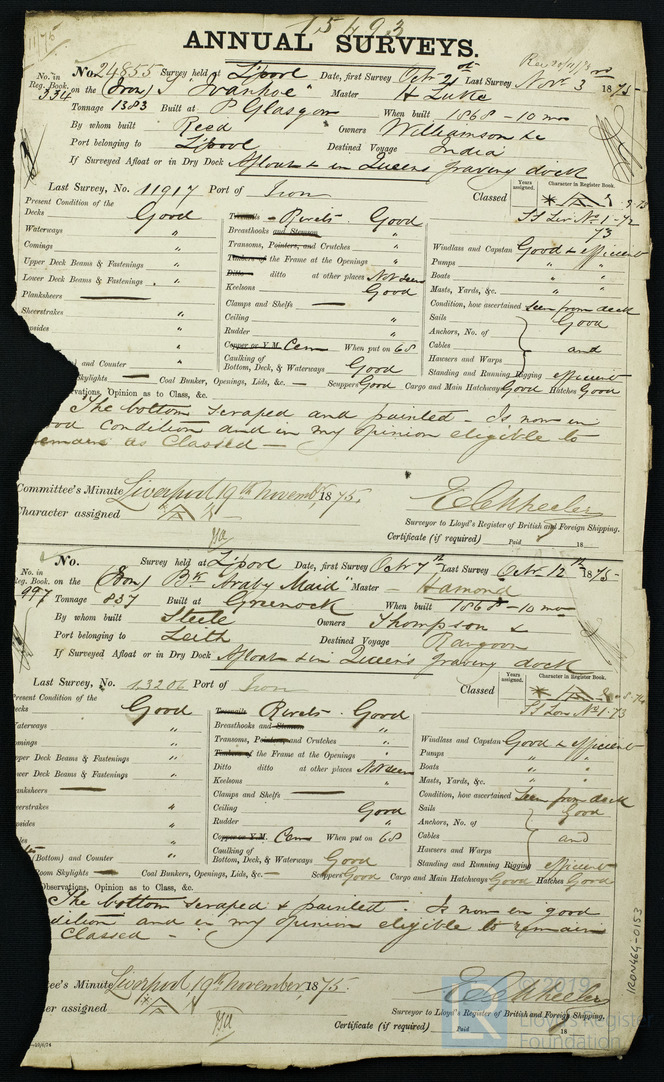 15493
11/76
ANNUAL SURVEYS.
No. 24855 Survey held at L'pool Date, first Survey Octr 21st Last Survey Novr 3rd 1875
No. in Reg. Book.
334 on the (Iron) S "Ivanhoe" Master H Luke
Tonnage 1383 Built at P Glasgow When built 1868 - 10 mo
By whom built Reed Owners Williamson &c
Port belonging to L'pool Destined Voyage India
If Surveyed Afloat or in Dry Dock Afloat & in Queens graving dock
Last Survey, No. 11917 Port of Iron Classed
Years assigned.
Character in Register Book.
Present Condition of the
Decks Good
Waterways "
Comings "
Upper Deck Beams & Fastenings "
Lower Deck Beams & Fastenings "
Planksheers —
Sheerstrakes "
Topsides "
and Counter "
Skylights — Coal Bunker, Openings, Lids, &c. — Scuppers Good Cargo and Main Hatchways Good Hatches Good
Treenails - Rivets Good
Breasthooks and Stemson "
Transoms, Pointers, and Crutches "
Timbers of the Frame at the Openings "
Ditto ditto at other places Not seen
Keelsons Good
Clamps and Shelfs —
Ceiling "
Rudder "
Copper or Y.M. Cem When put on 68
Caulking of Bottom, Deck, & Waterways Good
Windlass and Capstan Good & efficient
Pumps " "
Boats " "
Masts, Yards, &c. " "
Condition, how ascertained seen from deck
Sails Good
Anchors, No. of
Cables and
Hawsers and Warps
Standing and Running Rigging efficient
Observations, Opinion as to Class, &c.
The bottom scraped and painted - Is now in
good condition and in my opinion eligible to
remain as Classed -
Committee's Minute Liverpool 19th November 1875.
Character assigned
E C Wheeler
Surveyor to Lloyd's Register of British and Foreign Shipping.
Certificate (if required) Paid 18
No. Survey held at L'pool Date, first Survey Octr 7th Last Survey Octr 12th 1875
No. in Reg. Book.
997 on the (Iron) Bk "Araby Maid" Master Hamond
Tonnage 837 Built at Greenock When built 1868 - 10 mo
By whom built Steele Owners Thompson &
Port belonging to Leith Destined Voyage Rangoon
If Surveyed Afloat or in Dry Dock Afloat & in Queen's graving dock
Last Survey, No. 13206 Port of Iron Classed
Years assigned.
Character in Register Book.
Present Condition of the
Decks Good
Waterways "
Comings "
Upper Deck Beams & Fastenings "
Lower Deck Beams & Fastenings "
Planksheers —
Sheerstrakes "
Topsides "
(Bottom) and Counter "
Room Skylights — Coal Bunkers, Openings, Lids, &c. — Scuppers Good Cargo and Main Hatchways Good Hatches Good
Treenails Rivets Good
Breasthooks and Stemson "
Transoms, Pointers, and Crutches "
Timbers of the Frame at the Openings "
Ditto ditto at other places Not seen
Keelsons "
Clamps and Shelfs —
Ceiling Good
Rudder "
Copper or Y.M. Cem When put on 68
Caulking of Bottom, Deck, & Waterways Good
Windlass and Capstan Good & efficient
Pumps " "
Boats " "
Masts, Yards, &c. " "
Condition, how ascertained seen from deck
Sails Good
Anchors, No. of
Cables and
Hawsers and Warps
Standing and Running Rigging efficient
Observations, Opinion as to Class, &c.
The bottom scraped & painted. Is now in good
condition and in my opinion eligible to remain
Classed -
Committee's Minute Liverpool 19th November, 1875.
Character assigned
E C Wheeler
Surveyor to Lloyd's Register of British and Foreign Shipping.
Certificate (if required) Paid 18
IRON464-0153
© 2019
Lloyd's Register
Foundation